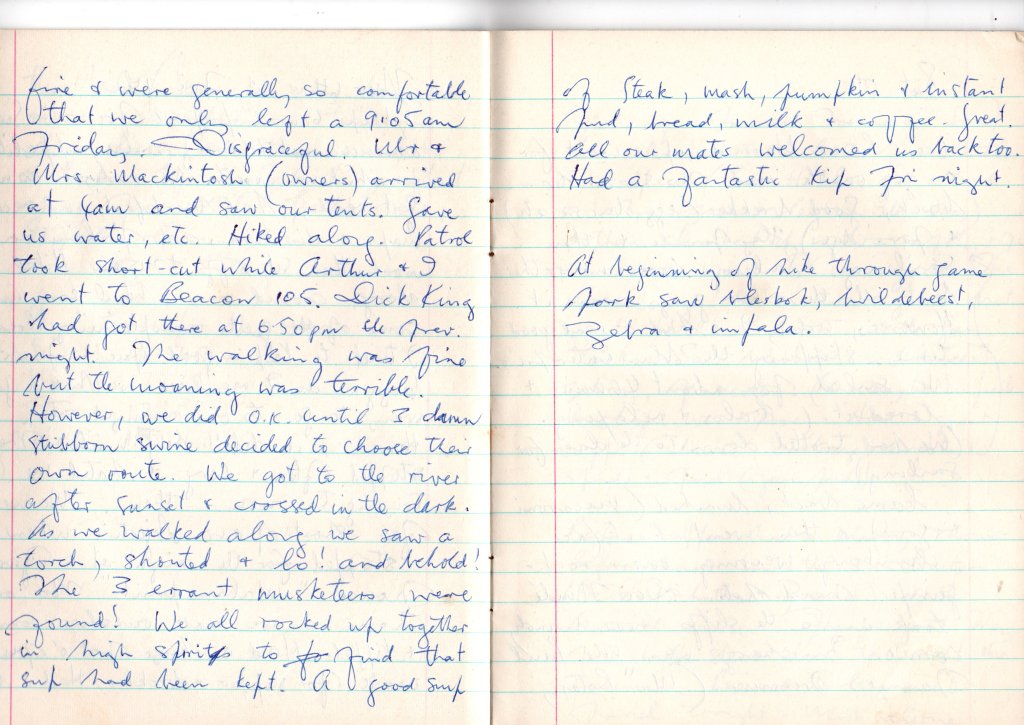 fire & were generally so comfortable
that we only left a 9:05am
Friday. Disgraceful. Mr &
Mrs Mackintosh (owners) arrived
at 4am and saw our tents. Gave
us water, etc. Hiked along. Patrol
took short-cut while Arthur & I
went to Beacon 105. Dick King
had got there at 6.50pm the prev.
night. The walking was fine
but the moaning was terrible.
However, we did O.K. until 3 damn
stubborn swine decided to choose their
own route. We got to the river
after sunset & crossed in the dark.
As we walked along we saw a
torch, shouted & lo! and behold!
The 3 errant musketeers were
found! We all rocked up together
in high spirits to find that
sup had been kept. A good sup
of Steak, mash, pumpkin & instant
pud, bread, milk & coffee. Great.
All our mates welcomed us back too.
Had a fantastic kip Fri night.
At beginning of hike through game
park saw blesbok, wildebeest,
Zebra & impala.